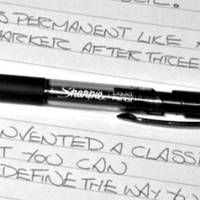 S PERMANENT LIKE A
MARKER AFTER THREE
Sharpie. LIQUID PENCIL
NVENTED A CLASSI
T YOU CAN
DEFINE THE WAY YO